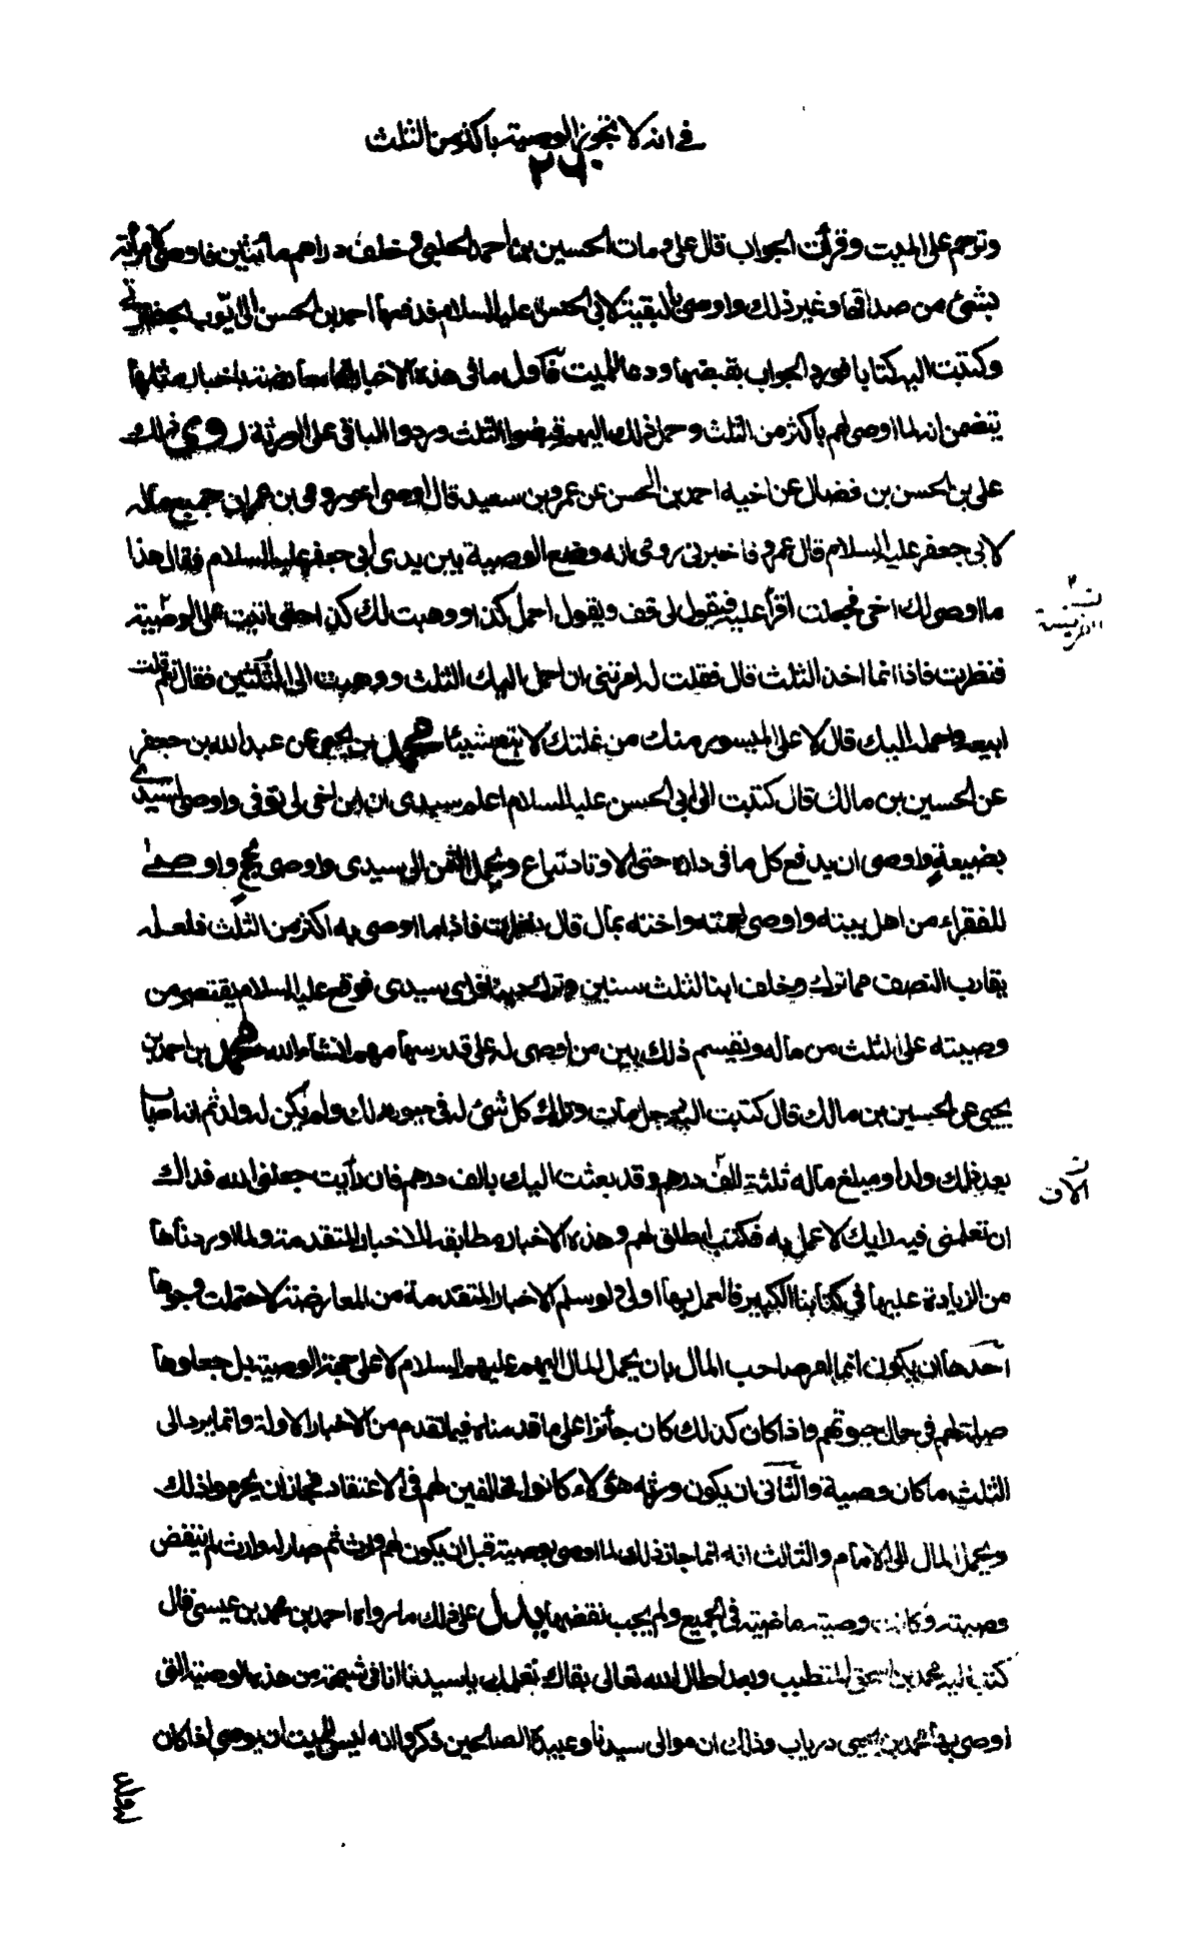 في انه لا تجوز الوصية باكثر من الثلث
٢٦٠
وترحم على الميت وقرأت الجواب قال علي ومات الحسين بن احمد الحلبي وخلف دراهم مأتين فاوصى لامرأته
بشئ من صداقها وغير ذلك واوصى بالبقية لابي الحسن عليه السلام فدفعها احمد بن الحسن الى ايوب بحضرتي
وكتبت اليه كتابا فورد الجواب بقبضها ودعا للميت فأول ما في هذه الاخبار انها معارضة باخبار مثلها
يتضمن انه لما اوصى لهم بأكثر من الثلث وحمل ذلك اليهم قبضوا الثلث وردوا الباقي على الورثة روى ذلك
على بن الحسن بن فضال عن اخيه احمد بن الحسن عن عمرو بن سعيد قال اوصى اخو رومى بن عمران جميع ماله
لابي جعفر عليه السلام قال عمرو فاخبرني رومى انه وضع الوصية بين يدى أبي جعفر عليه السلام فقال هذا
ما اوصى لك اخى فجعلت اقرأ عليه فيقول لى قف ويقول احمل كذا ووهبت لك كذا حتى اتيت على الوصية
فنظرت فاذا انما اخذ الثلث قال فقلت له امرتنى ان احمل اليك الثلث ووهبت الى الثلثين فقال نعم قلت
ابيعه واحمله اليك قال لا على الميسور منك من غلتك لا تبع شيئا محمد بن يحيى عن عبد الله بن جعفر
عن الحسين بن مالك قال كتبت الى ابي الحسن عليه السلام اعلم سيدى ان ابن اخى لى توفى واوصى لسيدى
بضيعة واوصى ان يدفع كل ما في داره حتى الاوتاد تباع ويحمل الثمن الى سيدى واوصى بحج واوصى
للفقراء من اهل بيته واوصى لعمته واخته بمال قال فنظرت فاذا ما اوصى به اكثر من الثلث فلعله
يقارب النصف مما ترك وخلف ابنا لثلث سنين وترك دينا فرأى سيدى فوقع عليه السلام يقتصر من
وصيته على الثلث من ماله ويقسم ذلك بين من اوصى له على قدر سهامهم انشاء الله محمد بن احمد بن
يحيى عن الحسين بن مالك قال كتبت اليه رجل مات وترك كل شئ له في حيوته لك ولم يكن له ولد ثم انه اصاب
بعد ذلك ولدا ومبلغ ماله ثلثة الف درهم وقد بعثت اليك بالف درهم فان رأيت جعلني الله فداك
ان تعلمنى فيه رايك لاعمل به فكتب اطلق لهم وهذه الاخبار مطابقة للاخبار المتقدمة ولما اوردناها
من الزيادة عليها في كتابنا الكبير فالعمل بها اولى ولو سلم الاخبار المتقدمة من المعارضة لاحتملت وجوها
احدها ان يكون انما امر صاحب المال بان يحمل المال اليهم عليهم السلام لا على جهة الوصية بل جعلوها
صلة لهم في حال حيوتهم واذا كان كذلك كان جائزا على ما قدمناه فيما تقدم من الاخبار الاولة وانما يرد الى
الثلث ما كان وصية والثاني ان يكون ورثه هؤلاء كانوا مخالفين لهم في الاعتقاد فجاز ان يحرموا ذلك
ويحمل المال الى الامام والثالث انه انما جاز ذلك لما اوصى بوصية قبل ان يكون لهم وارث ثم صار له وارث لم ينتقض
وصيته وكانت وصيته ماضية في الجميع ولم يجب نقضها يدل على ذلك ما رواه احمد بن محمد بن عيسى قال
كتب اليه محمد بن اسحق المتطبب وبعد اطال الله تعالى بقاك نعلمك يا سيدنا انا في شبهة من هذه الوصية التى
اوصى بها محمد بن يحيى درياب وذلك ان موالى سيدنا وعبيده الصالحين ذكروا انه ليس للميت ان يوصى اذا كان
الوصية
الاف